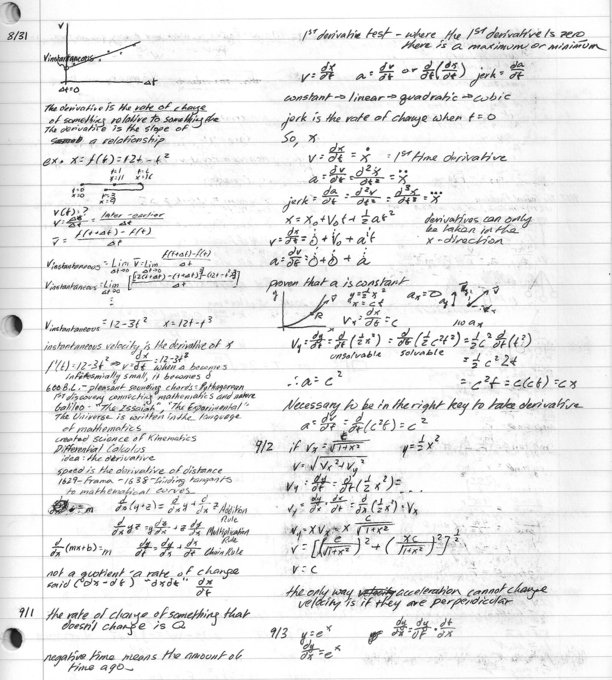 8/31
v
Vinstantaneous
Δt
Δt=0
The derivative is the rate of change
of something relative to something else
The derivative is the slope of
a relationship
ex. x = f(t) = 12t - t²
v(t)=?
later - earlier
Δt
v̄ = f(t+Δt) - f(t)
Δt
Vinstantaneous = Lim v̄ = Lim f(t+Δt)-f(t)
Δt→0 Δt→0 Δt
Vinstantaneous = Lim
Δt→0
Vinstantaneous = 12-3t² x = 12t-t³
instantaneous velocity is the derivative of x
f'(t)=12-3t² ⇒ v = dx/dt = 12-3t²
when Δ becomes
infintesmially small, it becomes d
600 B.C. - pleasant sounding chords: Pythagorean
1st discovery connecting mathematics and nature
Galileo - "The Issaiah", "The Experimental"
The Universe is written in the language
of mathematics
created science of Kinematics
Differential Calculus
idea: the derivative
speed is the derivative of distance
1629 - - 1638 - finding tangants
to mathematical curves
= m d/dx (y+z) = d/dx y + d/dx z Addition
Rule
d/dx yz = y dz/dx + z dy/dx Multiplication
Rule
d/dx (mx+b) = m dy/dt = dy/ds ds/dt Chain Rule
not a quotient - a rate of change
said ("dx - dt") "dxdt" dx/dt
9/1 the rate of change of something that
doesn't change is 0.
negative time means the amount of
time ago.
1st derivative test - where the 1st derivative is zero
there is a maximum or minimum
v = dx/dt a = dv/dt or d/dt (dx/dt) jerk = da/dt
constant → linear → quadratic → cubic
jerk is the rate of change when t = 0
So, x
v = dx/dt = ẋ = 1st time derivative
a = dv/dt = d²x/dt² = ẍ
jerk = da/dt = d²v/dt² = d³x/dt³ = x⃛
x = x₀ + v₀t + ½at² derivatives can only
be taken in the
x-direction
v = dx/dt = 0 + v₀ + at
a = dv/dt = 0 + 0 + a
proven that a is constant
y
R
y = ½x²
x = ct
aₓ = 0
no aₓ
vₓ = dx/dt = c
v_y = dy/dt = d/dt (½x²) = d/dt (½c²t²) = ½c² d/dt (t²)
unsolvable solvable
= ½c² 2t
∴ a = c² = c²t = c(ct) = cx
Necessary to be in the right key to take derivative
a = dv/dt = d/dt (c²t) = c²
9/2 if vₓ = c/√(1+x²) y = ½x²
v = √(vₓ² + v_y²)
v_y = dy/dt = d/dt (½x²) = ...
v_y = dy/dx · dx/dt = d/dx (½x²) · vₓ
v_y = xvₓ = x c/√(1+x²)
v = [(c/√(1+x²))² + (xc/√(1+x²))²]^½
v = c
the only way acceleration cannot change
velocity is if they are perpendicular
9/3 y = eˣ dy/dx = dy/dt · dt/dx
dy/dx = eˣ